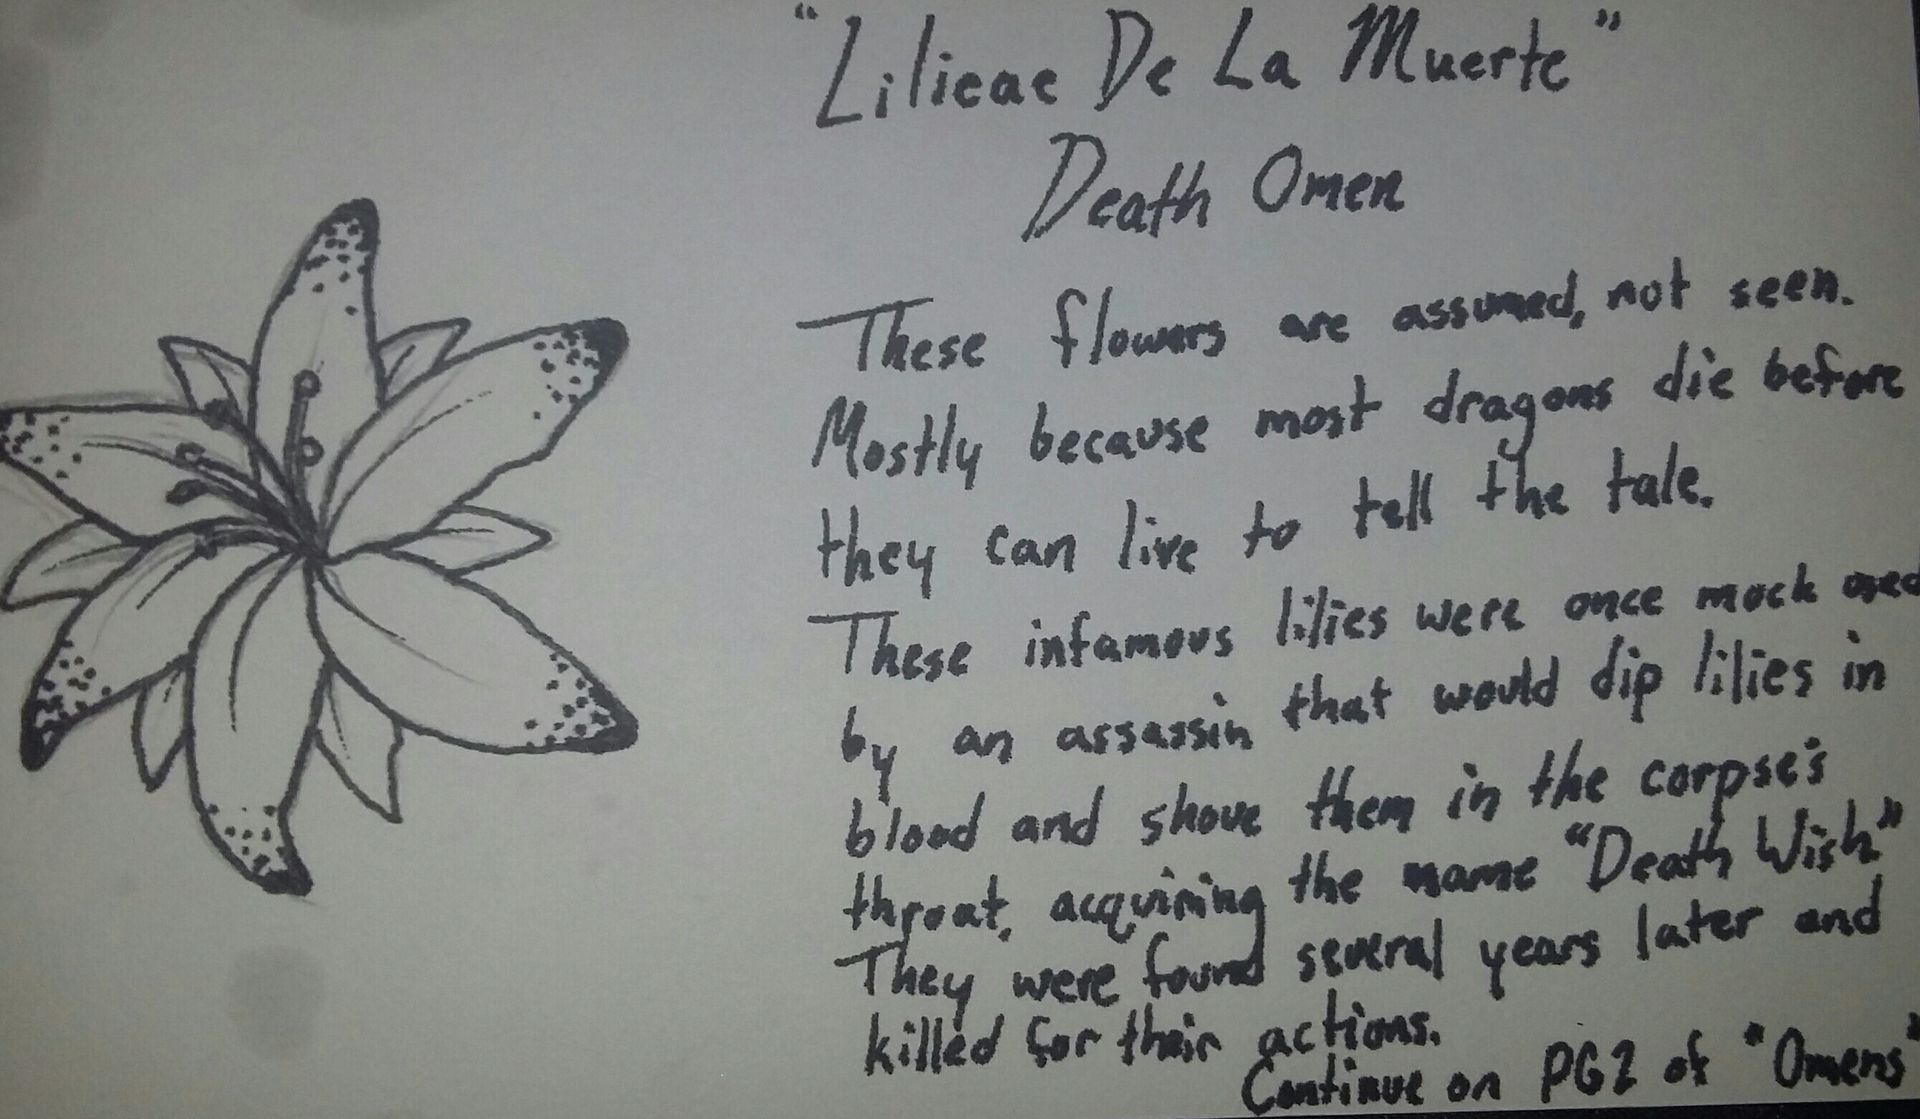 "Lilieae De La Muerte"
Death Omen
These flowers are assumed, not seen.
Mostly because most dragons die before
they can live to tell the tale.
These infamous lilies were once mock used
by an assassin that would dip lilies in
blood and shove them in the corpse's
throat, acquiring the name "Death Wish"
They were found several years later and
killed for their actions.
Continue on PG2 of "Omens"